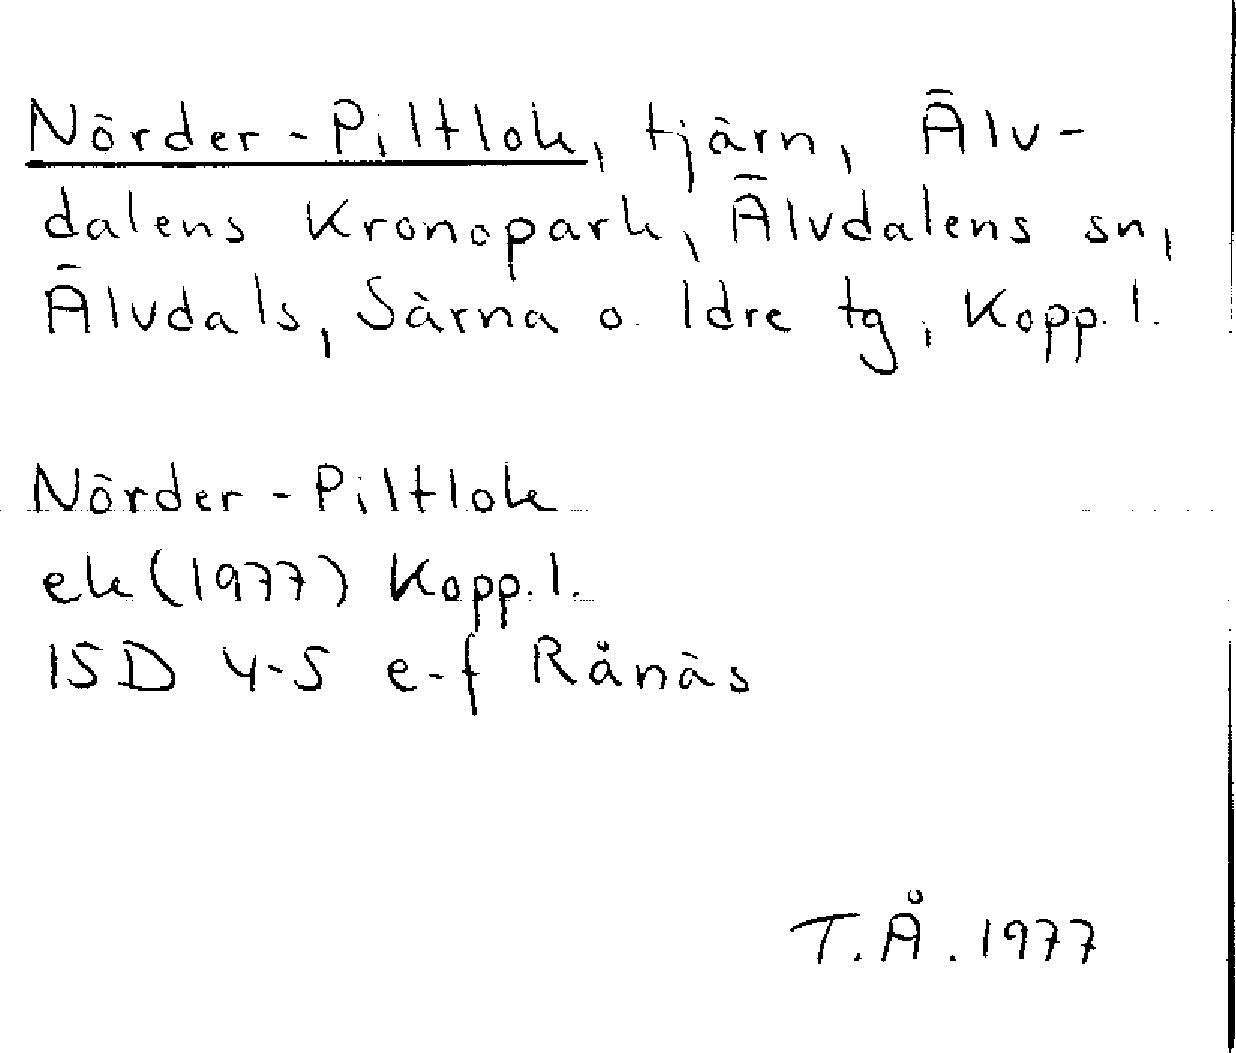 Nörder-Piltlok, tjärn, Älv-
dalens Kronopark, Älvdalens sn,
Älvdals, Särna o. Idre tg, Kopp. l.
Nörder-Piltlok
ek (1977) Kopp. l.
15D 4-5 e-f Rånäs
T.Å. 1977